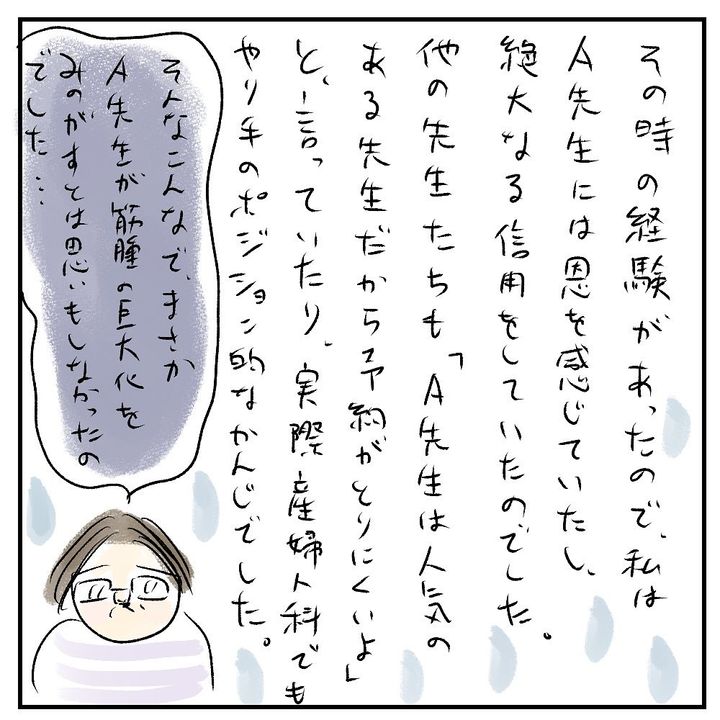 その時の経験があったので、私は
A先生には恩を感じていたし、
絶大なる信用をしていたのでした。
他の先生たちも「A先生は人気の
ある先生だから予約がとりにくいよ」
と、言っていたり、実際産婦人科でも
やり手のポジション的なかんじでした。
そんなこんなで、まさか
A先生が筋腫の巨大化を
みのがすとは思いもしなかったの
でした…